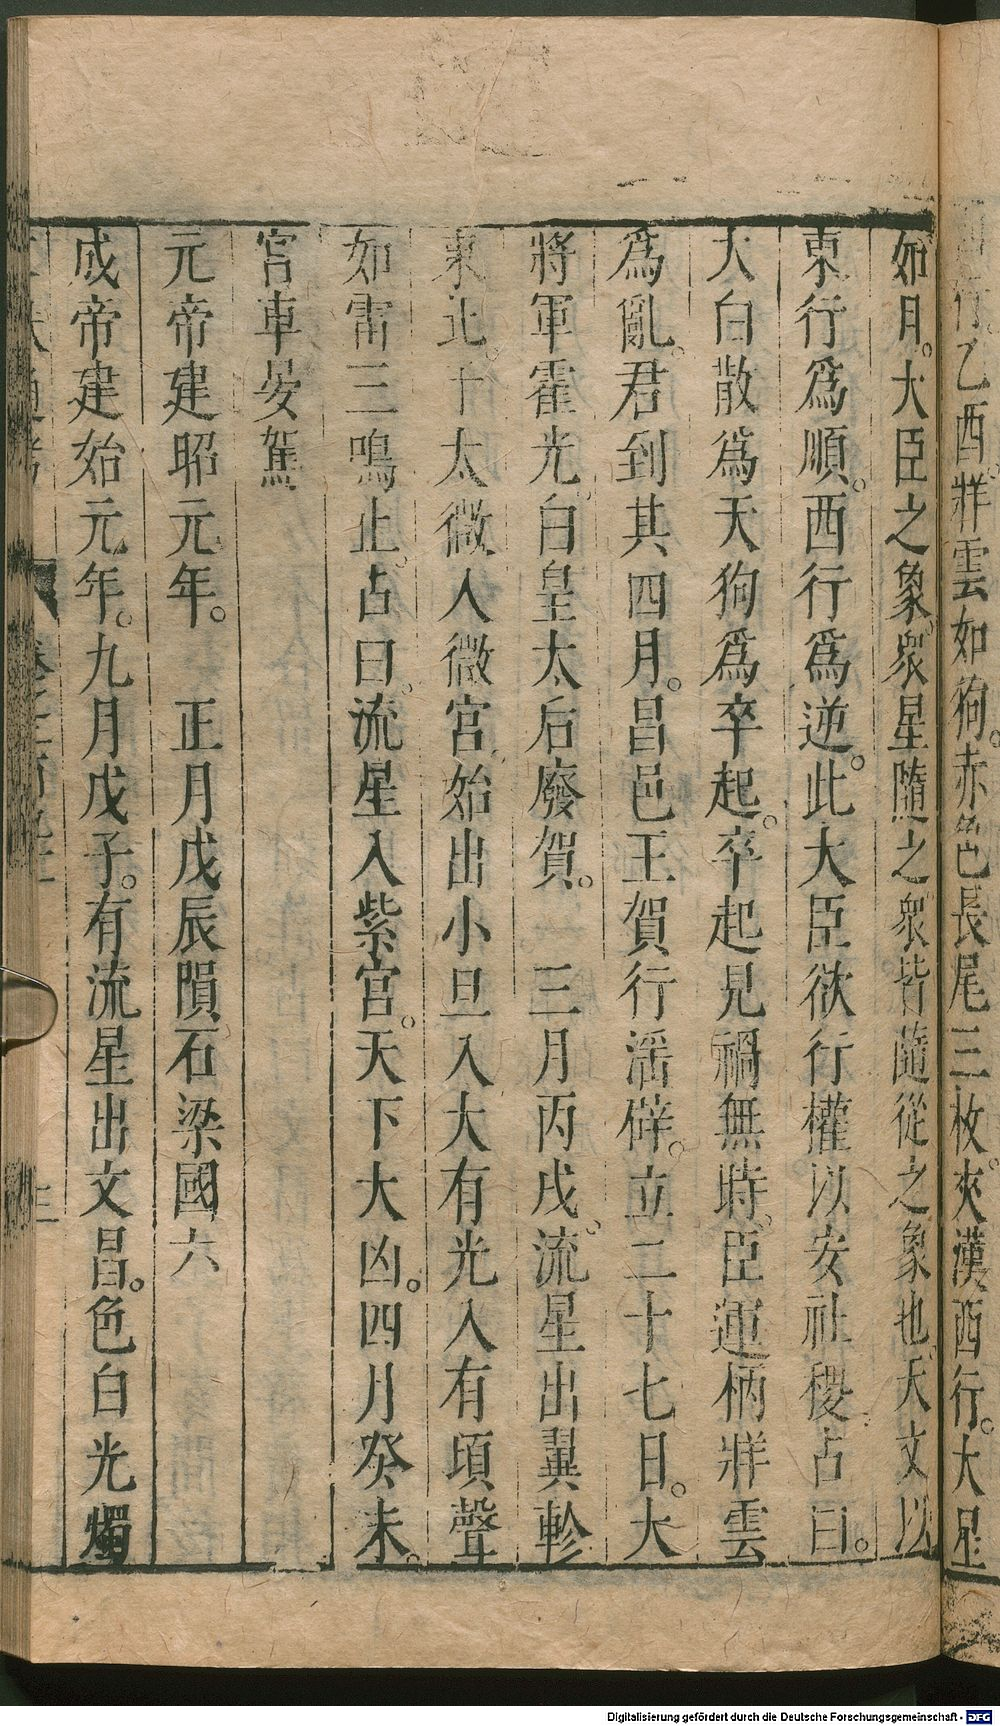 行。乙酉。牂雲如狗。赤色長尾三枚。夾漢西行。大星
如月。大臣之象。衆星隨之。衆皆隨從之象也。天文以
東行爲順。西行爲逆。此大臣欲行權以安社稷。占曰。
大白散爲天狗。爲卒起。卒起見禍無時。臣運柄。牂雲
爲亂。君到其四月。昌邑王賀行淫辟。立二十七日。大
將軍霍光。白皇太后廢賀。 三月丙戌。流星出翼軫
東北。干太微入微宮。始出小。旦入大有光。入有頃聲
如雷。三鳴止。占曰。流星入紫宮。天下大凶。四月癸未。
宮車晏駕
元帝建昭元年。 正月戊辰隕石梁國六
成帝建始元年。九月戊子。有流星出文昌。色白光燭
Digitalisierung gefördert durch die Deutsche Forschungsgemeinschaft - DFG